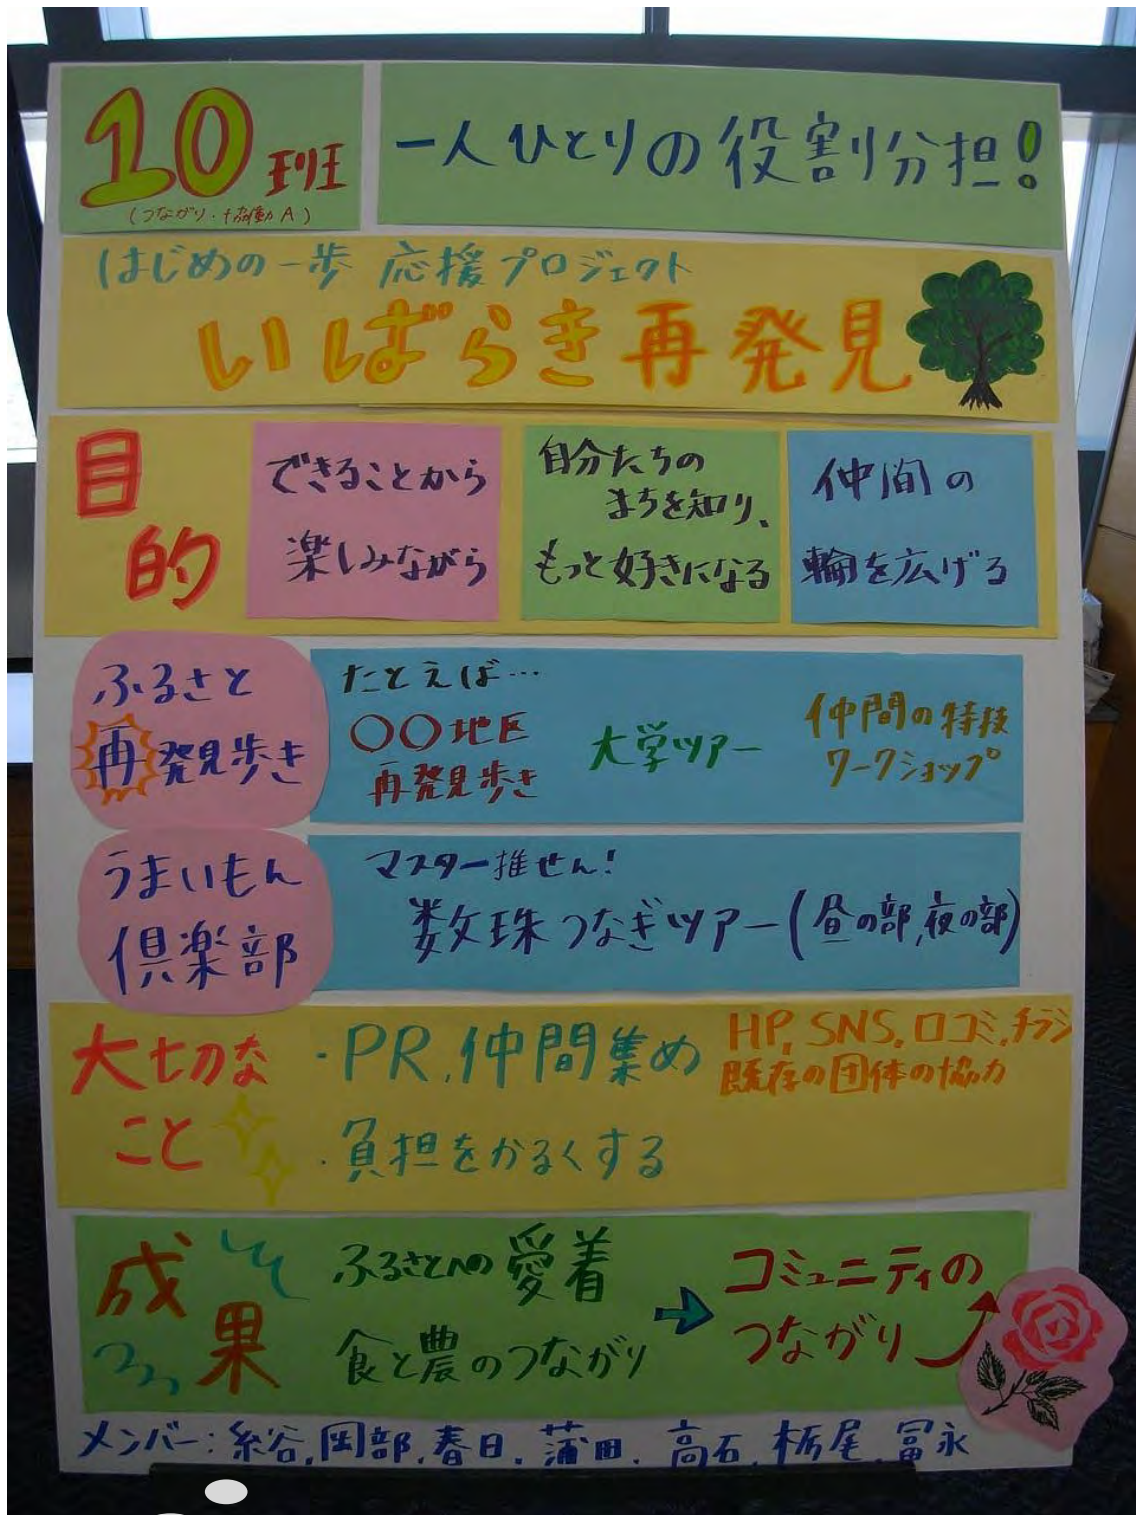 10班
(つながり・協働A)
一人ひとりの役割分担!
はじめの一歩 応援プロジェクト
いばらき再発見
目的
できることから
楽しみながら
自分たちの
まちを知り、
もっと好きになる
仲間の
輪を広げる
ふるさと
再発見歩き
たとえば…
○○地区
再発見歩き
大学ツアー
仲間の特技
ワークショップ
うまいもん
倶楽部
マスター推せん!
数珠つなぎツアー(昼の部,夜の部)
大切な
こと
・PR,仲間集め
HP,SNS,口コミ,チラシ
既存の団体の協力
・負担をかるくする
成果
ふるさとへの愛着
食と農のつながり
コミュニティの
つながり
メンバー:糸谷,岡部,春日,蒲田,高石,栃尾,冨永